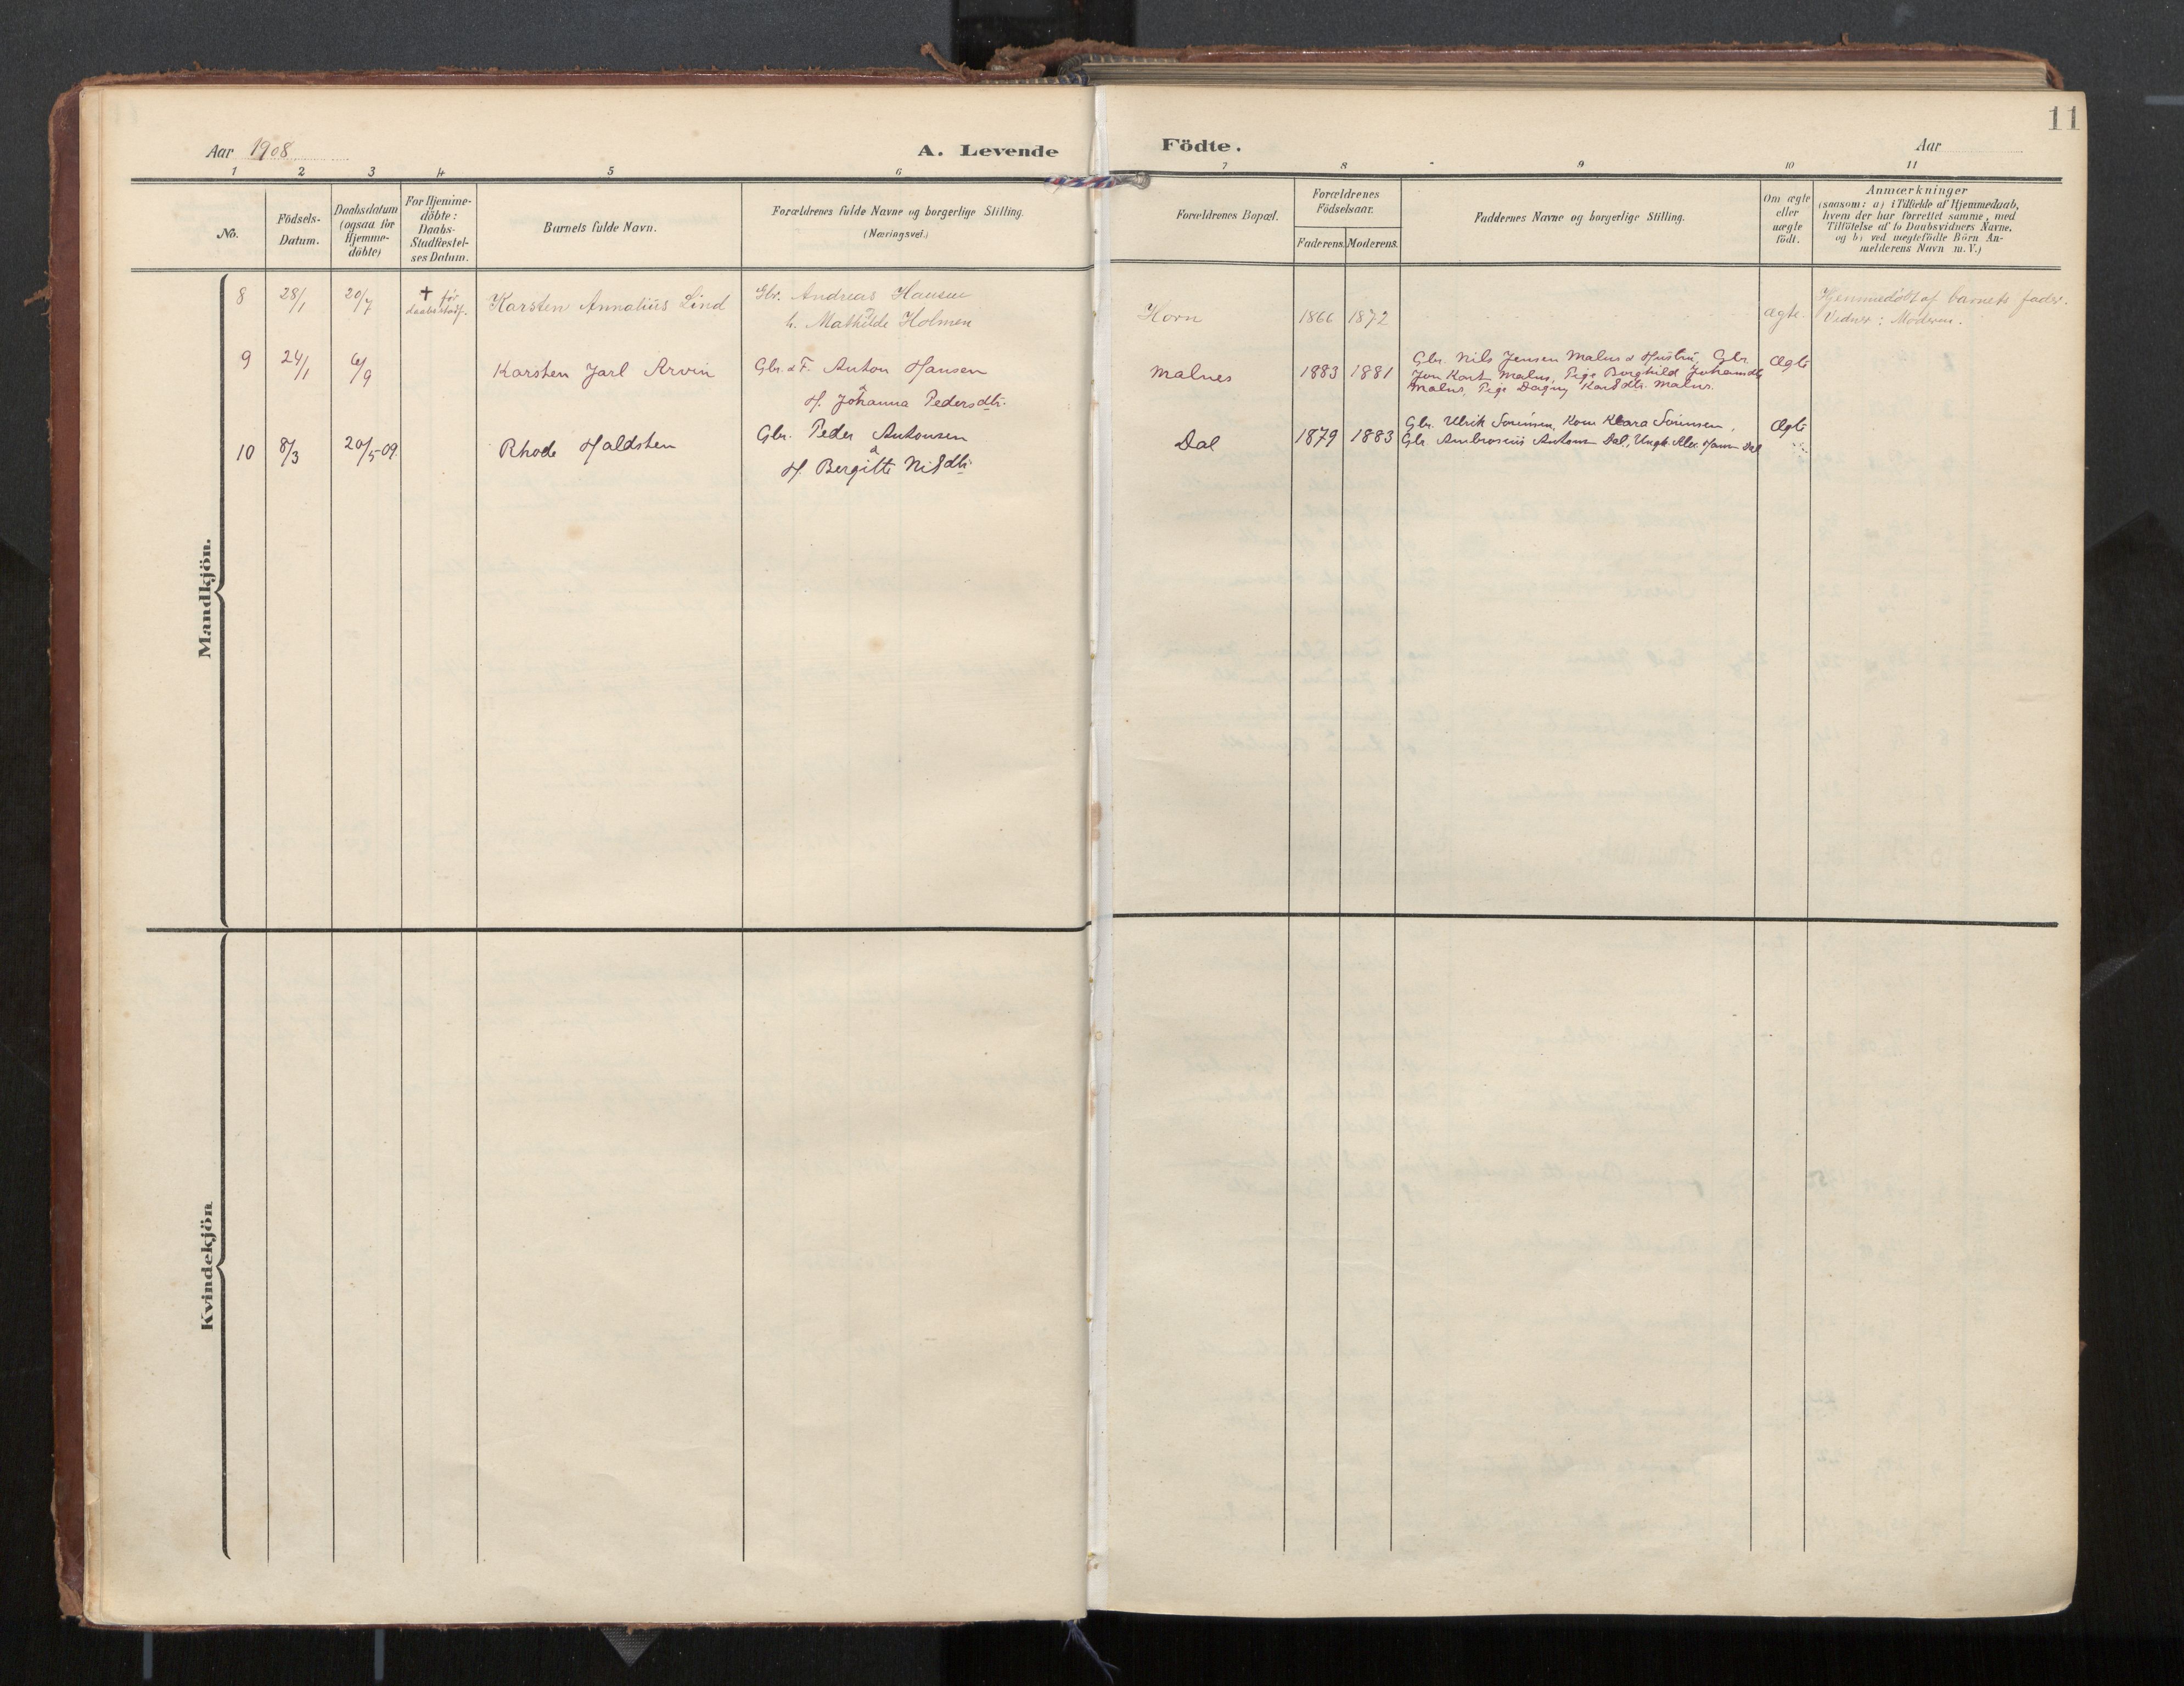 Aar 1908
A. Levende
Födte.
Aar
11
1 2 3 4 5 6 7 8 9 10 11
No.
Födsels-
Datum.
Daabsdatum
(ogsaa for
Hjemme-
döbte)
For Hjemme-
döbte:
Daabs-
Stadfæstel-
ses Datum.
Barnets fulde Navn.
Forældrenes fulde Navne og borgerlige Stilling.
(Næringsvei.)
Forældrenes Bopæl.
Forældrenes
Födselsaar.
Faderens. Moderens.
Faddernes Navne og borgerlige Stilling.
Om ægte
eller
uægte
födt.
Anmærkninger
(saasom: a) i Tilfælde af Hjemmedaab,
hvem der har forrettet samme, med
Tilföielse af to Daabsvidners Navne,
og b) ved uægtefödte Börn An-
melderens Navn m. V.)
Mandkjön.
8 28/1 20/7 † før
daabsstadf.
Karsten Annatius Lind
Gbr. Andreas Hansen
h. Mathilde Holmen
Horn
1866 1872
ægte.
Hjemmedöbt af barnets fader.
Vidner: Moderen.
9 24/1 6/9
Karsten Jarl Arvin
Gbr. & F. Anton Hansen
&
H. Johanna Pedersdtr.
Malnes
1883 1881
Gbr. Nils Jensen Malnes & Hustru, Gbr.
Jon Kart Malnes, Pige Borghild Johansdtr
Malnes, Pige Dagny Karlsdtr. Malnes.
Ægte
10 8/3 20/5-09
Rhode Haldsten
Gbr. Peder Antonsen
&
H. Bergitte Nilsdtr.
Dal
1879 1883
Gbr. Ulrik Sørensen, Kone Klara Sørensen,
Gbr. Ambrosius Antonsen Dal, Ungk. Alex. Hansen Dal
Ægte
Kvindekjön